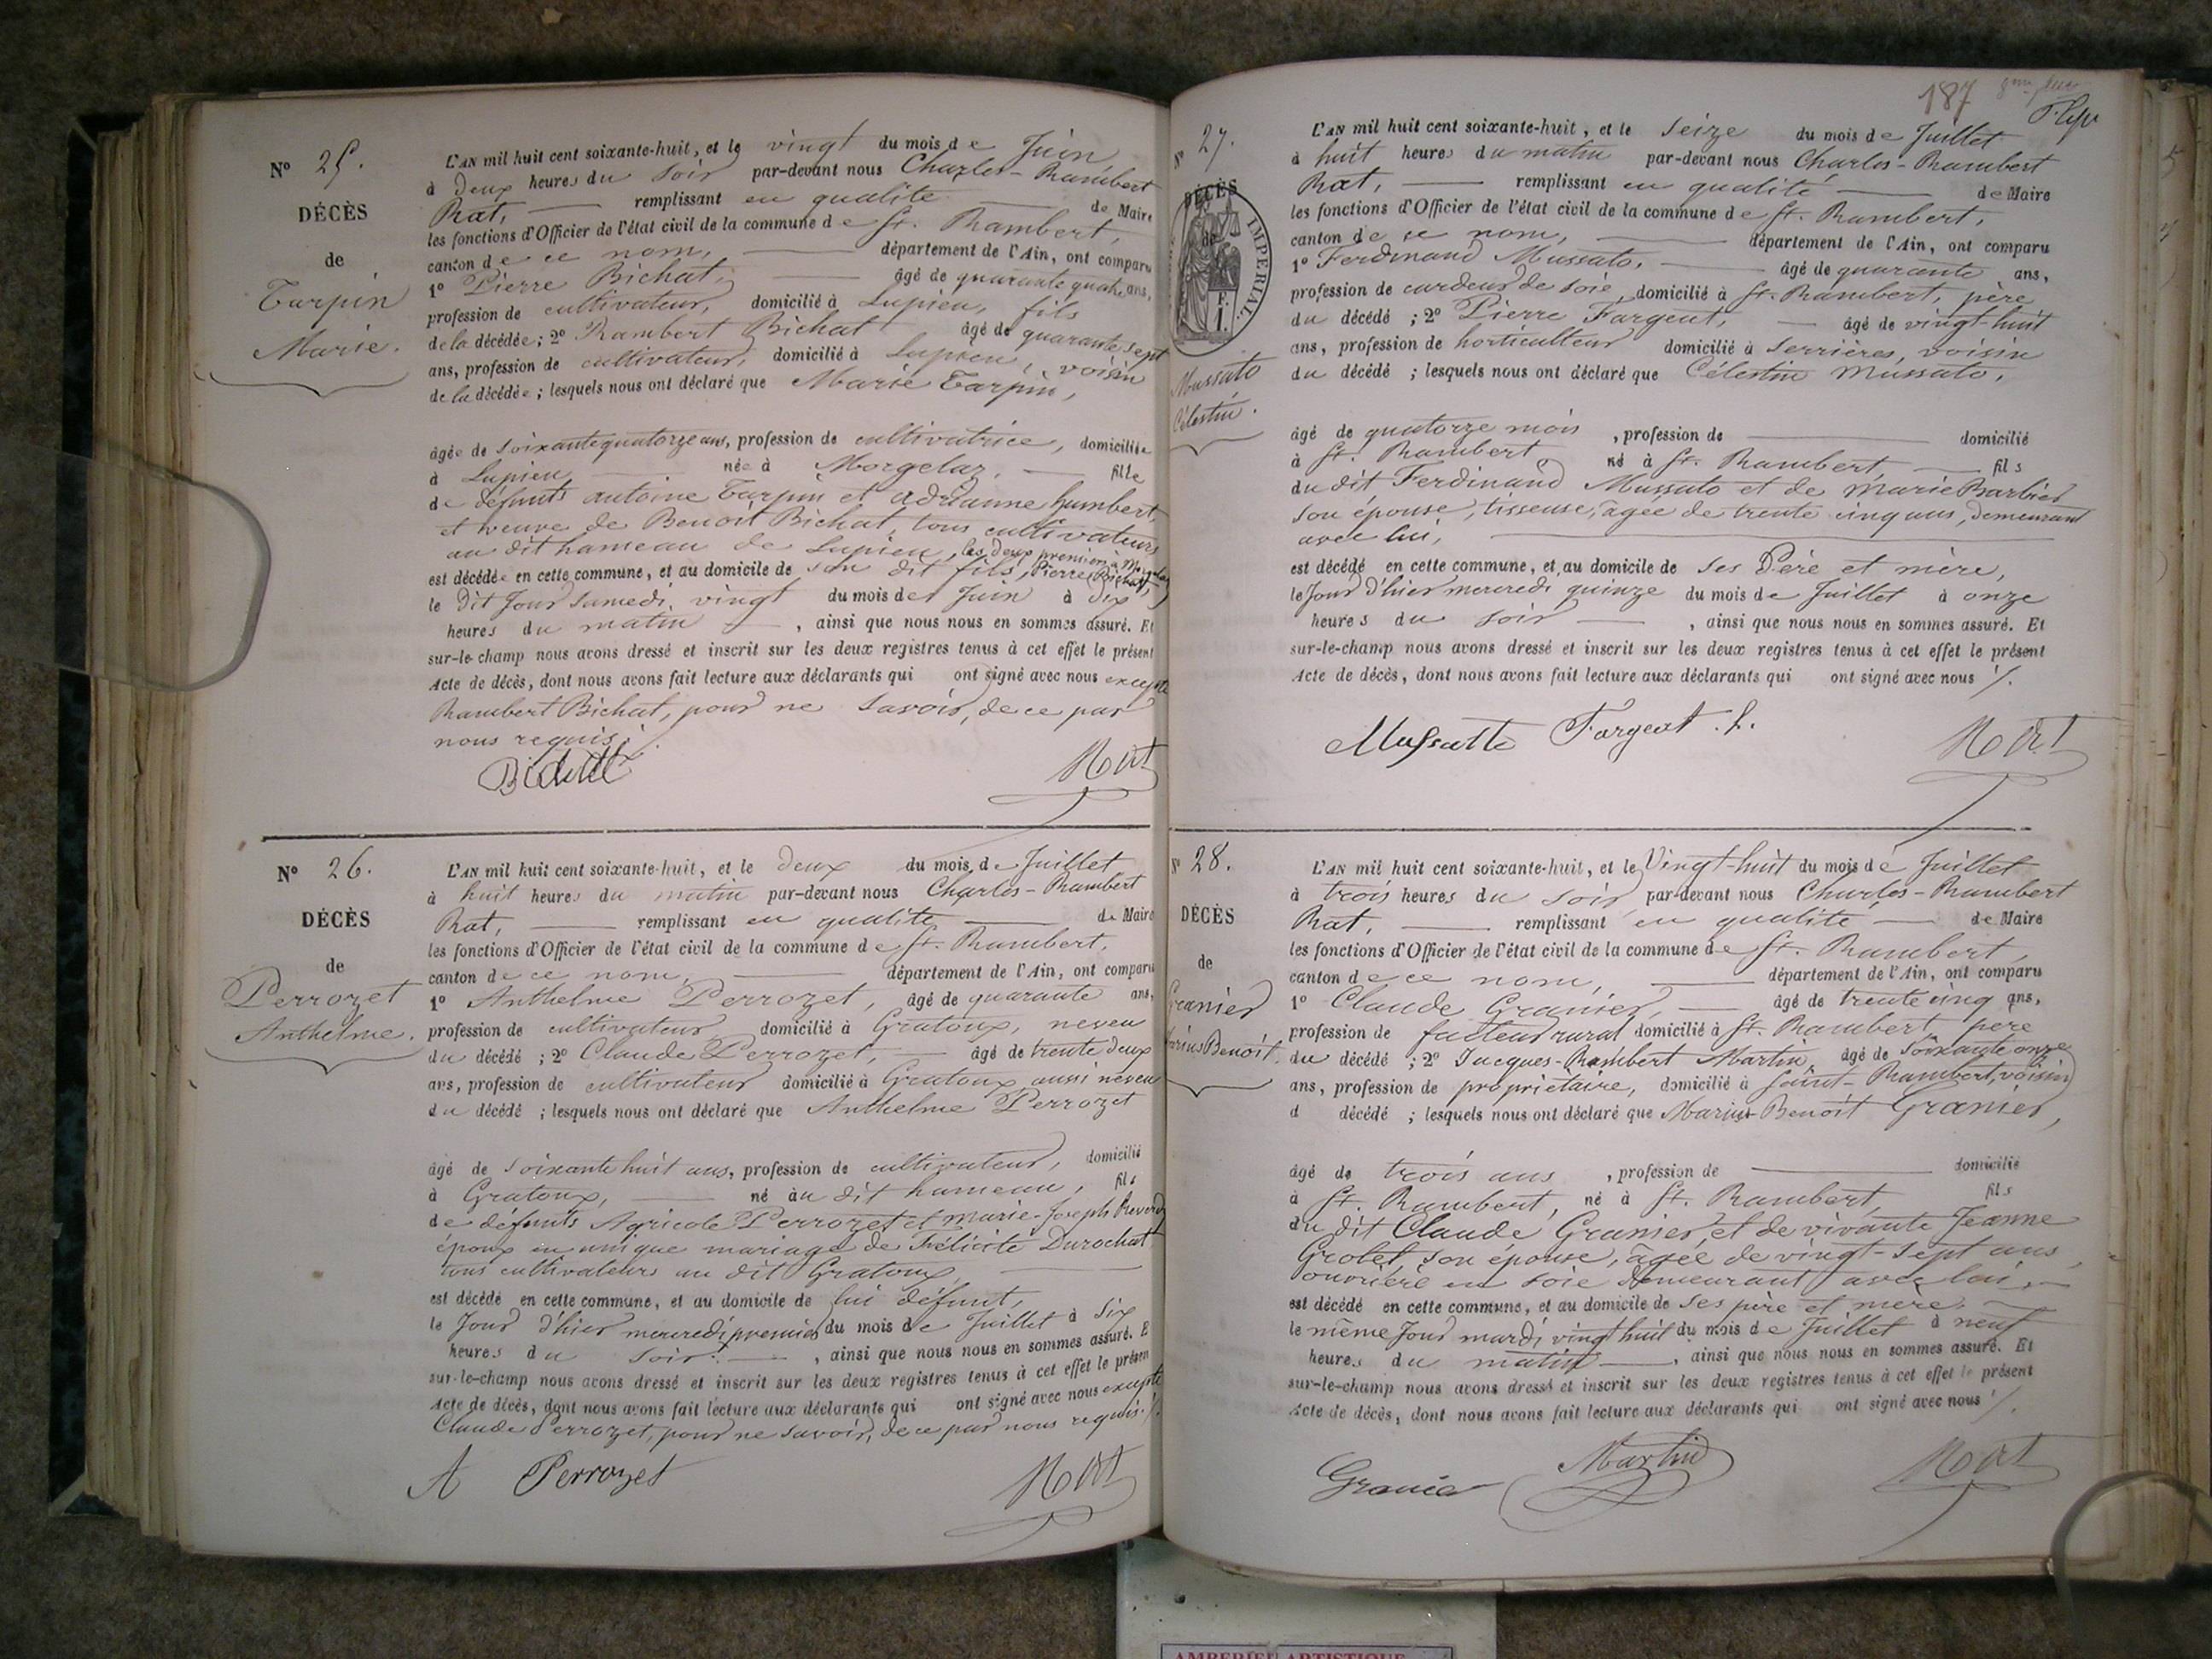 Nº 25.
DÉCÈS
de
Tarpin
Marie.
L'AN mil huit cent soixante-huit, et le vingt du mois de Juin
à deux heures du soir par-devant nous Charles-Rambert
Rat, remplissant en qualité de Maire
les fonctions d'Officier de l'état civil de la commune de St. Rambert,
canton de ce nom, département de l'Ain, ont comparu
1º Pierre Bichat, âgé de quarante quatre ans,
profession de cultivateur, domicilié à Lupieu, fils
de la décédée ; 2º Rambert Bichat âgé de quarante sept
ans, profession de cultivateur, domicilié à Lupieu, voisin
de la décédée ; lesquels nous ont déclaré que Marie Tarpin,
âgée de soixante quatorze ans, profession de cultivatrice, domiciliée
à Lupieu née à Morgelaz, fille
de défunts antoine Tarpin et adrianne humbert,
et veuve de Benoit Bichat, tous cultivateurs
au dit hameau de Lupieu, les deux premiers à Morgelaz
est décédée en cette commune, et au domicile de son dit fils, Pierre Bichat,
le dit Jour samedi, vingt du mois de Juin à dix
heures du matin, ainsi que nous nous en sommes assuré. Et
sur-le-champ nous avons dressé et inscrit sur les deux registres tenus à cet effet le présent
Acte de décès, dont nous avons fait lecture aux déclarants qui ont signé avec nous excepté
Rambert Bichat, pour ne savoir, de ce par
nous requis ./.
Bichat Rat
Nº 26.
DÉCÈS
de
Perrozet
Anthelme.
L'AN mil huit cent soixante-huit, et le deux du mois de Juillet
à huit heures du matin par-devant nous Charles-Rambert
Rat, remplissant en qualité de Maire
les fonctions d'Officier de l'état civil de la commune de St. Rambert,
canton de ce nom, département de l'Ain, ont comparu
1º Anthelme Perrozet, âgé de quarante ans,
profession de cultivateur domicilié à Gratoux, neveu
du décédé ; 2º Claude Perrozet, âgé de trente deux
ans, profession de cultivateur domicilié à Gratoux, aussi neveu
du décédé ; lesquels nous ont déclaré que Anthelme Perrozet
âgé de soixante huit ans, profession de cultivateur, domicilié
à Gratoux, né au dit hameau, fils
de défunts Agricole Perrozet et marie-Joseph Reverdy
époux en unique mariage de Félicité Durochat
tous cultivateurs au dit Gratoux
est décédé en cette commune, et au domicile de lui défunt,
le Jour d'hier mercredi premier du mois de Juillet à six
heures du soir, ainsi que nous nous en sommes assuré. Et
sur-le-champ nous avons dressé et inscrit sur les deux registres tenus à cet effet le présent
Acte de décès, dont nous avons fait lecture aux déclarants qui ont signé avec nous excepté
Claude Perrozet, pour ne savoir, de ce par nous requis ./.
A Perrozet Rat
187
Nº 27.
DÉCÈS
de
IMPÉRIAL.
Mussato
Célestin.
L'AN mil huit cent soixante-huit, et le seize du mois de Juillet
à huit heures du matin par-devant nous Charles-Rambert
Rat, remplissant en qualité de Maire
les fonctions d'Officier de l'état civil de la commune de St. Rambert,
canton de ce nom, département de l'Ain, ont comparu
1º Ferdinand Mussato, âgé de quarante ans,
profession de cardeur de soie, domicilié à St. Rambert, père
du décédé ; 2º Pierre Fargeat, âgé de vingt-huit
ans, profession de horticulteur domicilié à Serrières, voisin
du décédé ; lesquels nous ont déclaré que Célestin Mussato,
âgé de quatorze mois, profession de domicilié
à St. Rambert, né à St. Rambert, fils
du dit Ferdinand Mussato et de Marie Barbier
son épouse, tisseuse, agée de trente cinq ans, demeurant
avec lui,
est décédé en cette commune, et au domicile de ses Père et mère,
le Jour d'hier mercredi quinze du mois de Juillet à onze
heures du soir, ainsi que nous nous en sommes assuré. Et
sur-le-champ nous avons dressé et inscrit sur les deux registres tenus à cet effet le présent
Acte de décès, dont nous avons fait lecture aux déclarants qui ont signé avec nous ./.
Mussatto Fargeat Rat
Nº 28.
DÉCÈS
de
Granier
Marius Benoit.
L'AN mil huit cent soixante-huit, et le Vingt-huit du mois de Juillet
à trois heures du soir par-devant nous Charles-Rambert
Rat, remplissant en qualité de Maire
les fonctions d'Officier de l'état civil de la commune de St. Rambert,
canton de ce nom, département de l'Ain, ont comparu
1º Claude Granier, âgé de trente cinq ans,
profession de facteur rural domicilié à St. Rambert, père
du décédé ; 2º Jacques-Rambert Martin, âgé de soixante onze
ans, profession de propriétaire, domicilié à Saint-Rambert, voisin
d décédé ; lesquels nous ont déclaré que Marius-Benoit Granier,
âgé de trois ans, profession de domicilié
à St. Rambert, né à St. Rambert, fils
du dit Claude Granier, et de vivante Jeanne
Grolet, son épouse, agée de vingt-sept ans,
ouvrière en soie demeurant avec lui,
est décédé en cette commune, et au domicile de ses père et mère,
le même Jour mardi vingt huit du mois de Juillet à neuf
heures du matin, ainsi que nous nous en sommes assuré. Et
sur-le-champ nous avons dressé et inscrit sur les deux registres tenus à cet effet le présent
Acte de décès, dont nous avons fait lecture aux déclarants qui ont signé avec nous ./.
Granier Martin Rat
AMBERIEU ARTISTIQUE